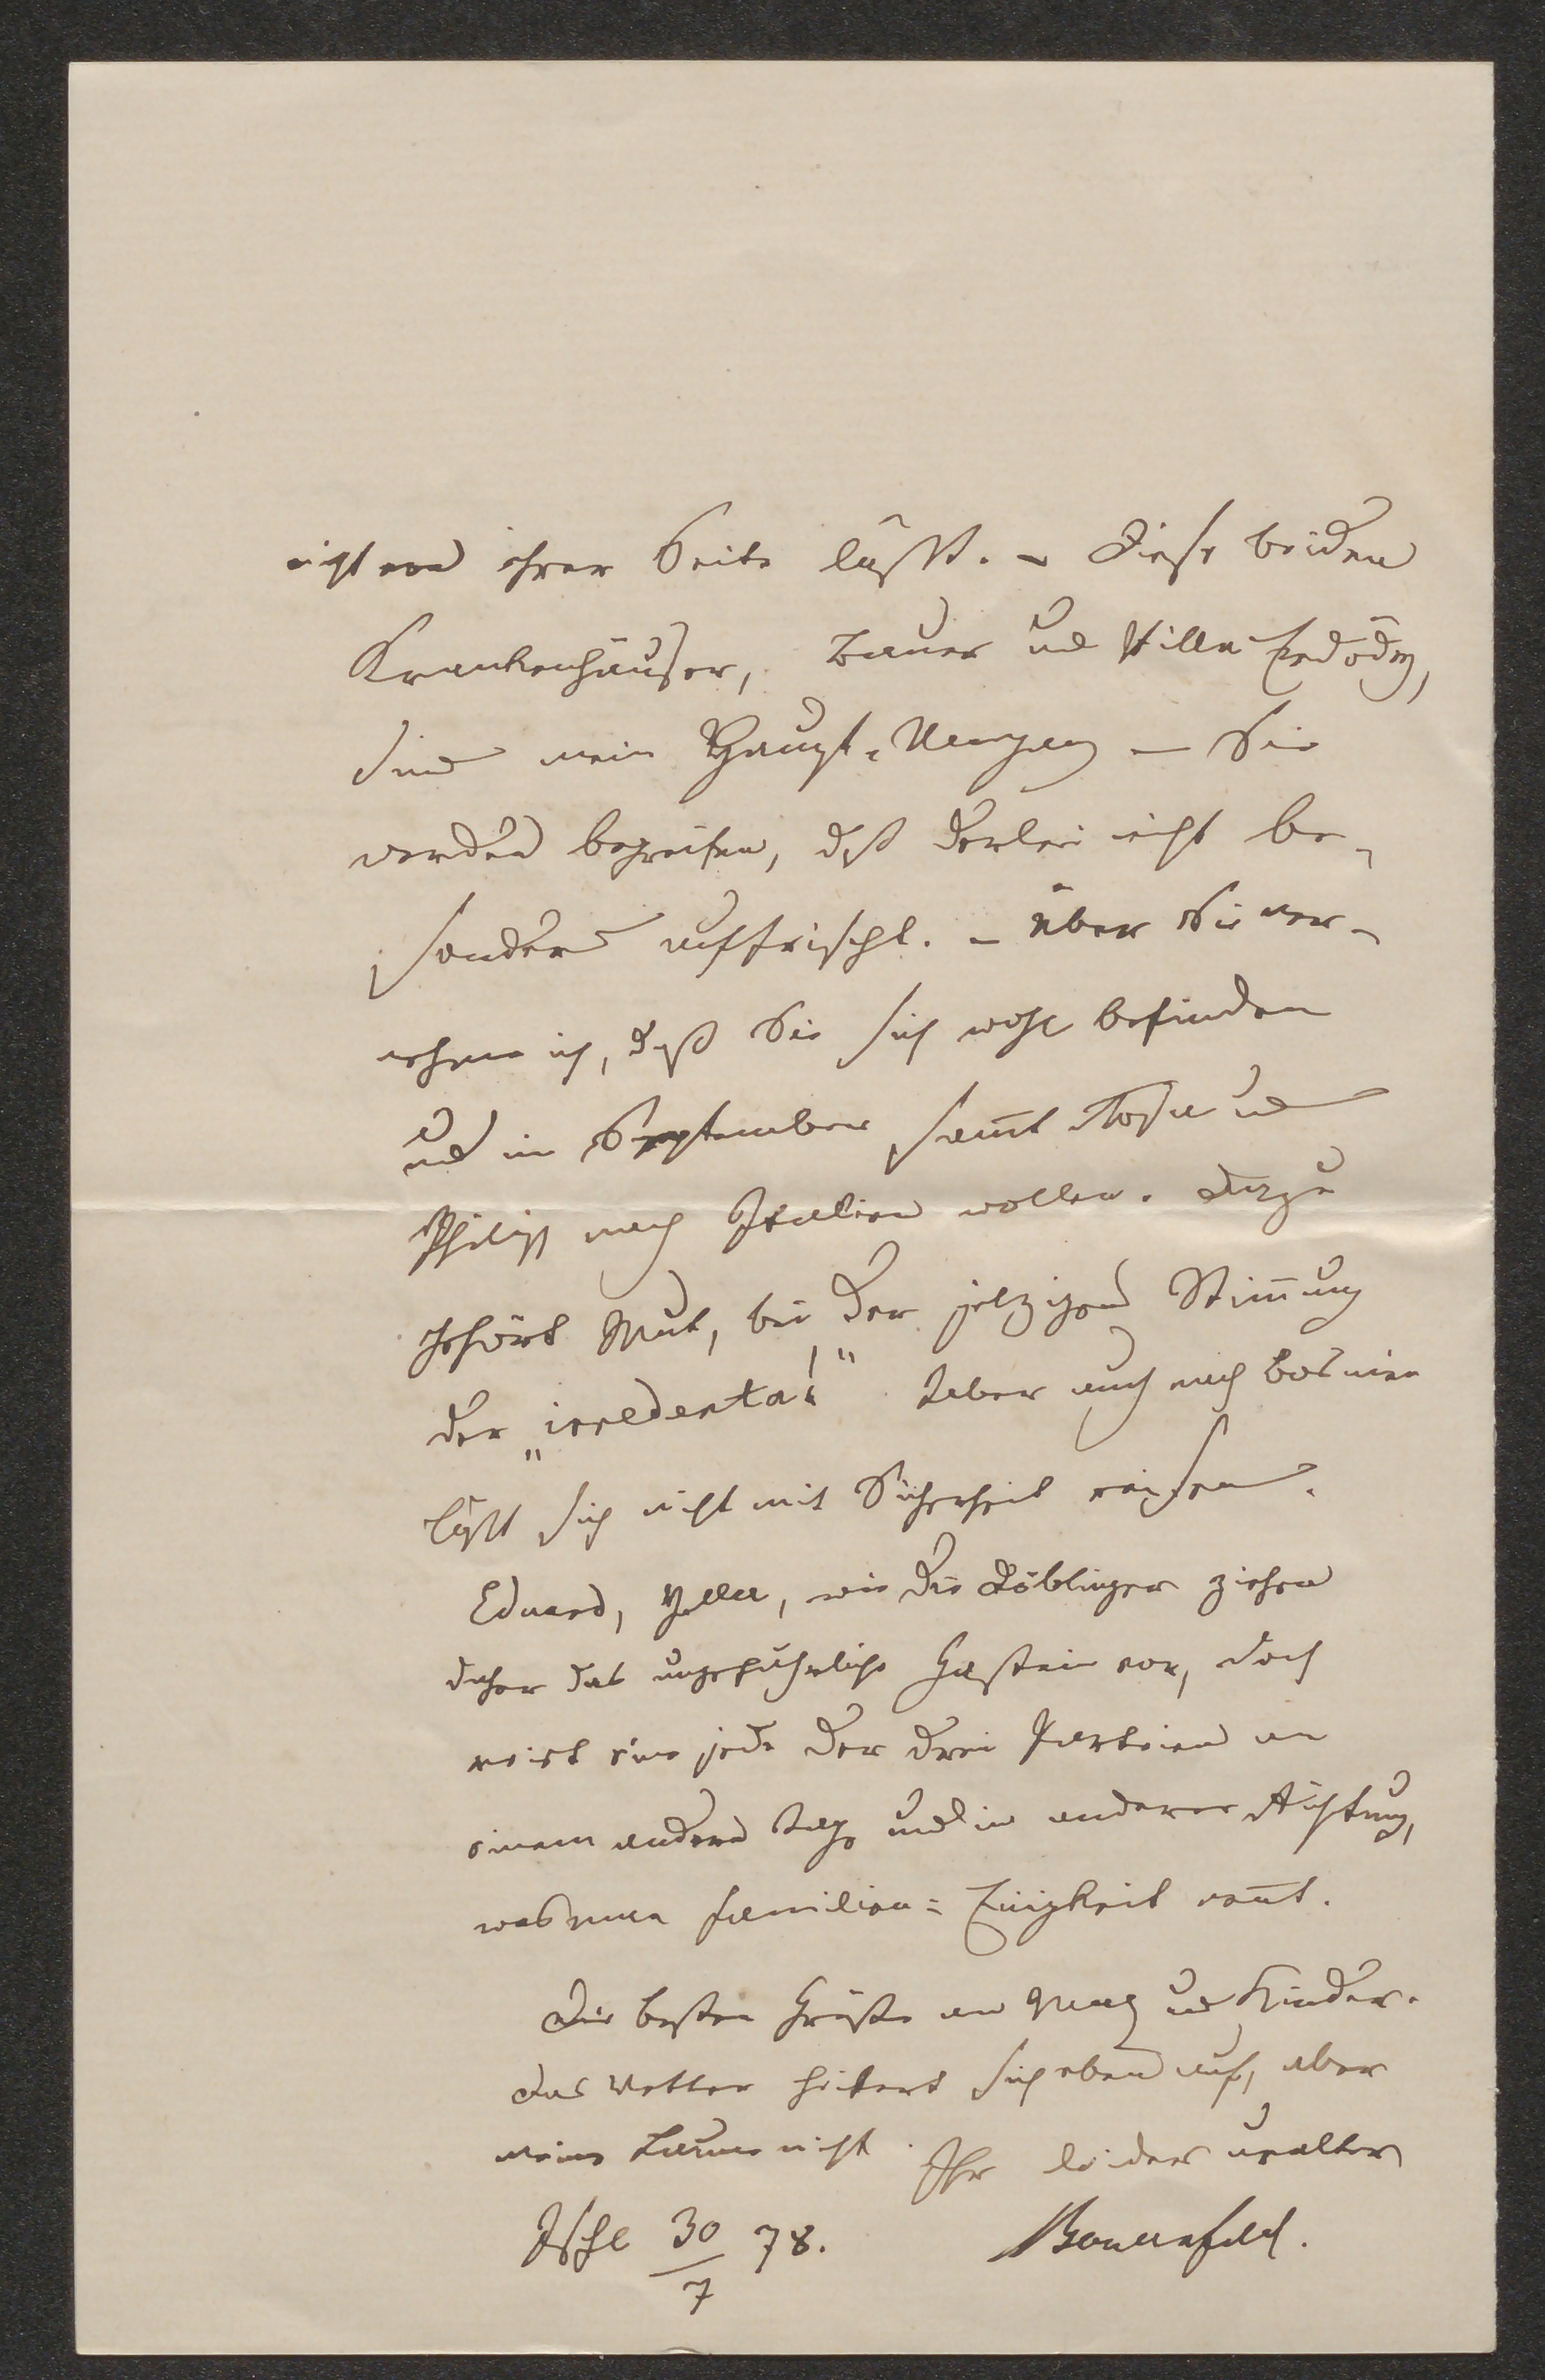 nicht von ihrer Seite läßt. – Diese beiden
Krankenhäuser, Bauer und Villa Erdödy,
sind mein Haupt-Umgang – Sie
werden begreifen, daß derlei nicht be-
sonders auffrischt. – Über Sie ver-
nehme ich, daß Sie sich wohl befinden
und im September sam̅t Tochter und
Philipp nach Italien wollen. Dazu
gehört Mut, bei der jetzigen Stim̅ung
der „irredenta!“ Aber auch nach Bosnien
läßt sich nicht mit Sicherheit reisen.
Eduard, Yella, wie die Döblinger ziehen
daher das ungefährliche Gastein vor, doch
reist eine jede der drei Parteien an
einem andern Tage und in anderer Richtung,
was man Familien-Einigkeit nen̅t.
Die besten Grüße an und Kinder.
Das Wetter heitert sich eben auf, aber
meine Laune nicht. Ihr leider uralter
Ischl 30/7 78. Bauernfeld.